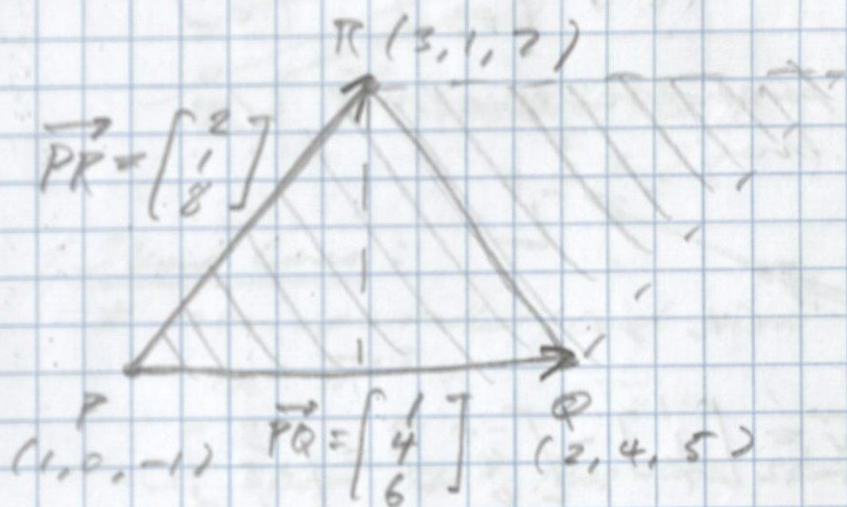 R (3, 1, 7)
PR = [2 1 8]
P
(1, 0, -1)
PQ = [1 4 6]
Q
(2, 4, 5)